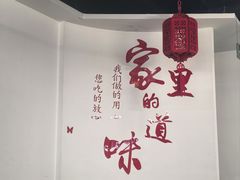 家里的道味
我们做的用
您吃的放